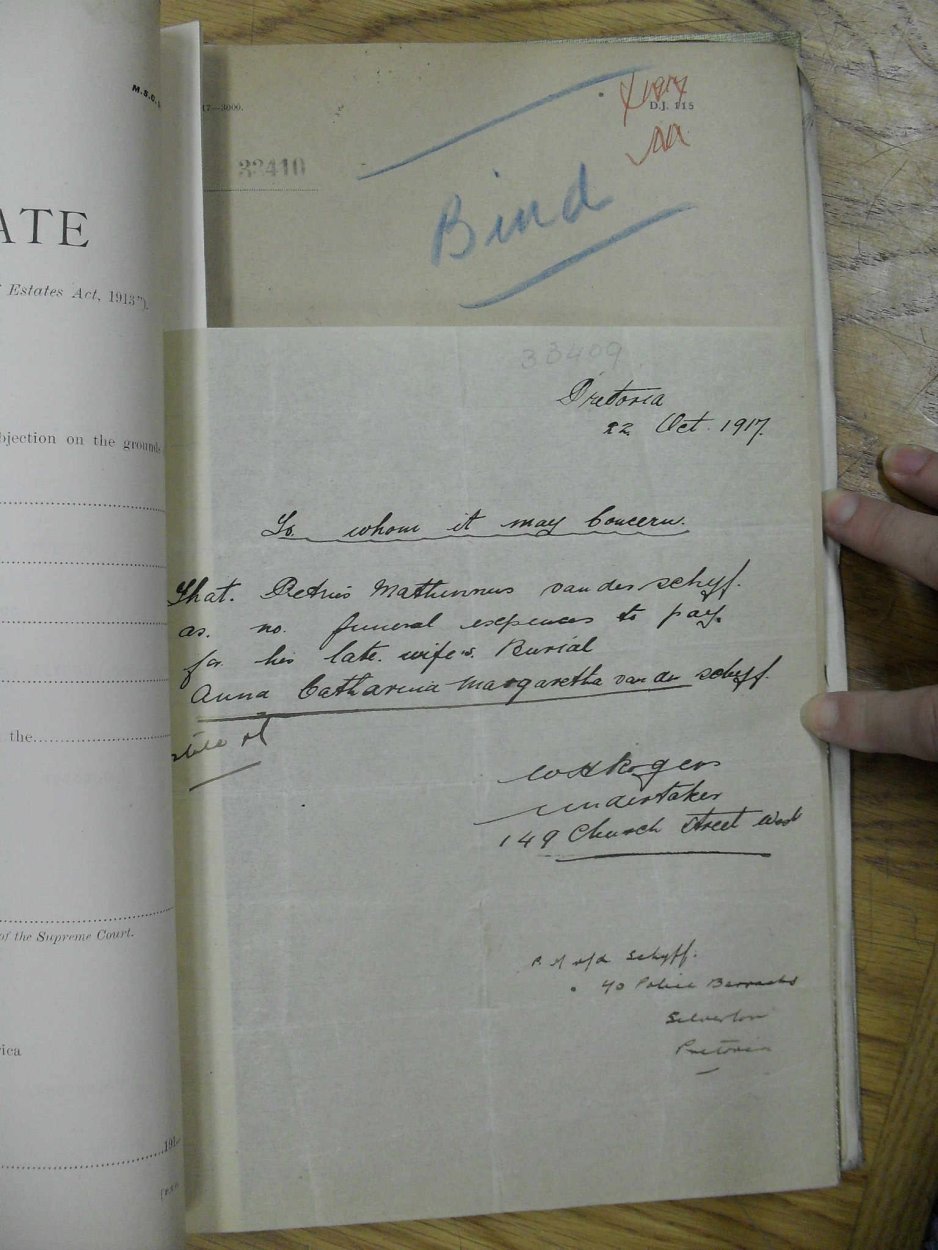 M.S.O.
ATE
Estates Act, 1913").
bjection on the grounds
the
of the Supreme Court.
ica
191
17—3000.
D.J. 115
33410
Bind
33409
Pretoria
22 Oct. 1917.
To whom it may Concern.
That. Petrus Mathinnus van der schyf.
as. no. funeral expences to pay.
for his late. wife's. Burial
Anna Catharina Margaretha van der schyff.
W H Rogers
undertaker
149 Church Street West
P M v/d Schyff.
40 Police Barracks
Silverton
Pretoria